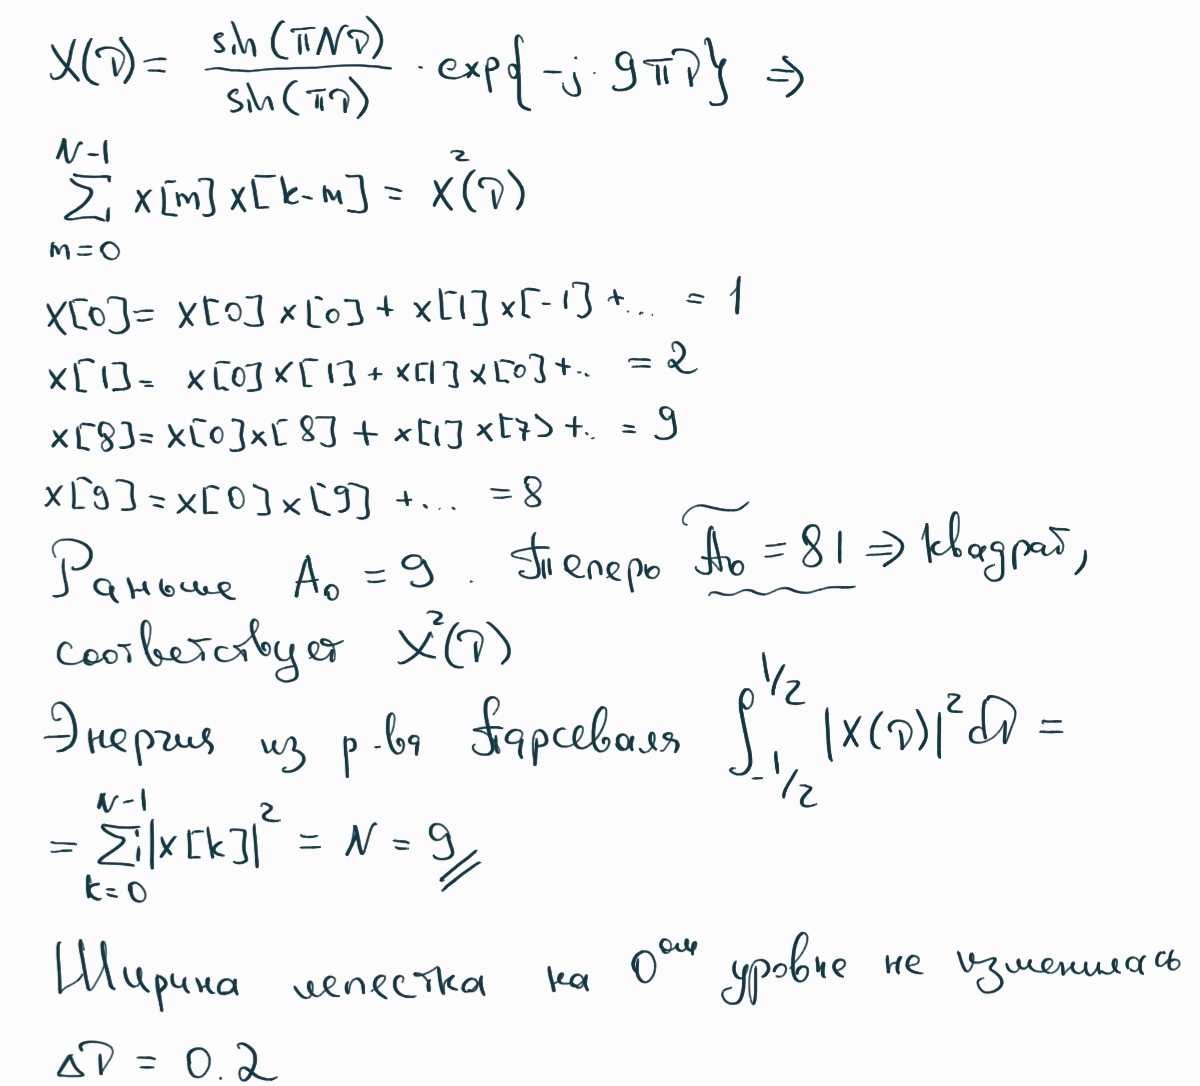 X(ν) = sin(πNν) / sin(πν) · exp{-j· 9πν} ⇒
N-1 ∑ m=0 x[m] x[k-m] = X²(ν)
X[0]= x[0] x[0] + x[1] x[-1] +... = 1
x[1]= x[0] x[1] + x[1] x[0] +.. = 2
x[8]= x[0]x[8] + x[1] x[7) +.. = 9
x[9] = x[0] x[9] +... = 8
Раньше A₀ = 9 . Теперь Ã₀ = 81 ⇒ квадрат,
соответствует X²(ν)
Энергия из р-ва Парсеваля ∫_{-1/2}^{1/2} |X(ν)|² dν =
= N-1 ∑ k=0 |x[k]|² = N = 9
Ширина лепестка на 0ом уровне не изменилась
Δν = 0.2